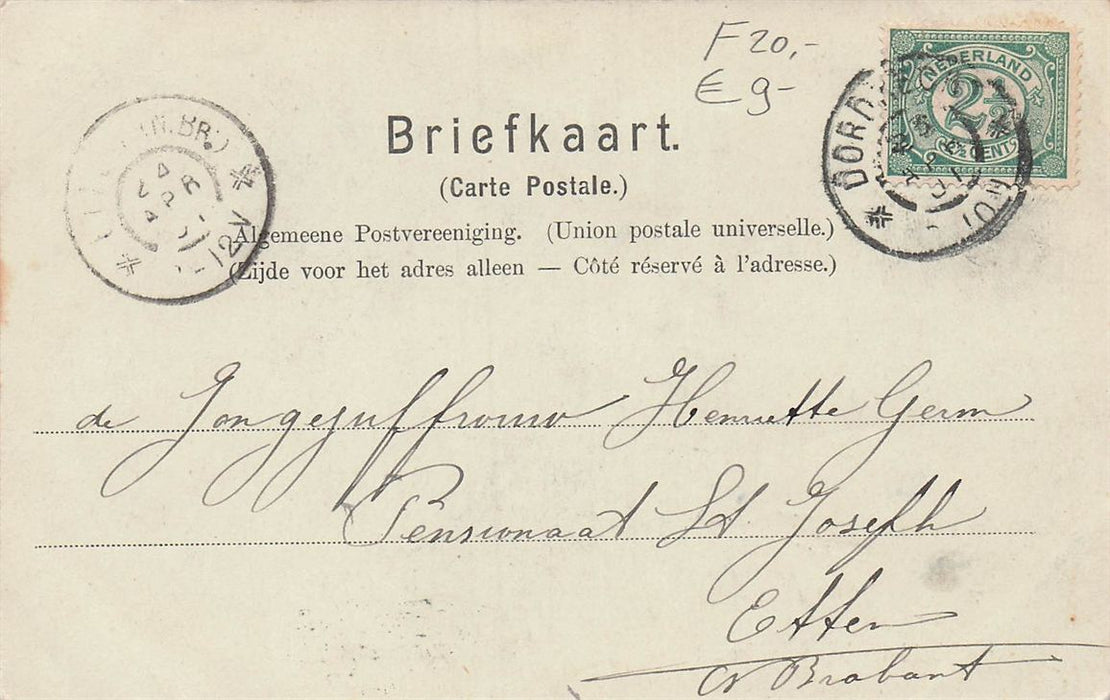 F 20,-
€ 9-
NEDERLAND
2½
2½ CENT
(N.BR.)
Briefkaart.
(Carte Postale.)
Algemeene Postvereeniging. (Union postale universelle.)
(Zijde voor het adres alleen — Côté réservé à l'adresse.)
de Jongejuffrouw Henriette Germ
Pensionaat St Joseph
Etten
N Brabant